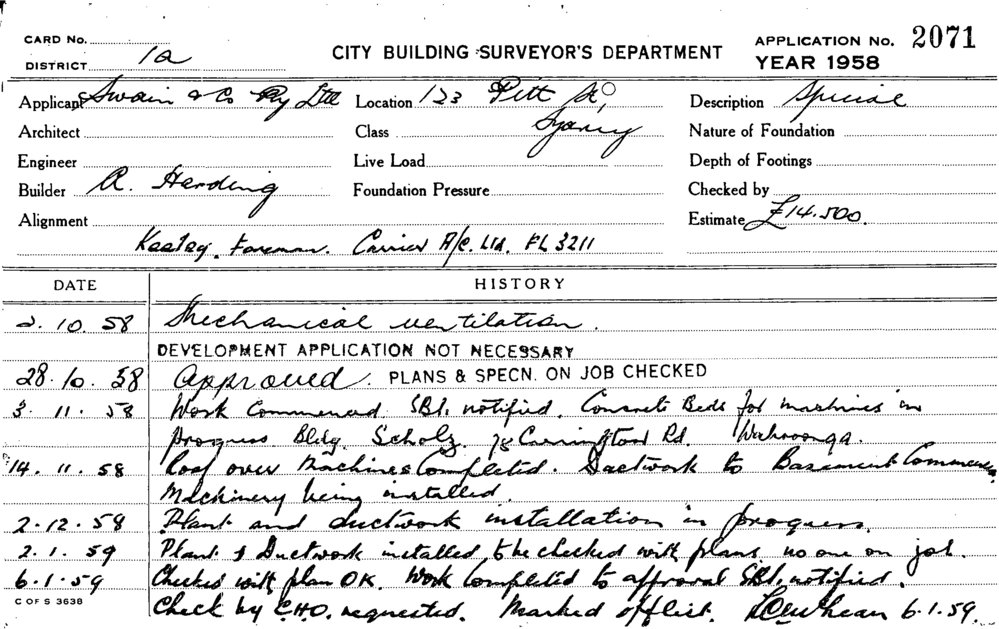 CARD No.
DISTRICT 1a
CITY BUILDING SURVEYOR'S DEPARTMENT
APPLICATION No. 2071
YEAR 1958
Applicant Swain & Co Pty Ltd Location 123 Pitt St, Description Special
Architect Class Sydney Nature of Foundation
Engineer Live Load Depth of Footings
Builder R. Harding Foundation Pressure Checked by
Alignment Estimate £14.500.
Foreman. Carrier A/C. Ltd. FL 3211
DATE HISTORY
2.10.58 Mechanical ventilation.
DEVELOPMENT APPLICATION NOT NECESSARY
28.10.58 Approved. PLANS & SPECN. ON JOB CHECKED
3.11.58 Work Commenced. SBI. notified. Concrete Beds for machines in
progress Bldg. Scholz. 78 Carrington Rd. Wahroonga.
14.11.58 Roof over Machines Completed. Ductwork to Basement Commenced.
Machinery being installed.
2.12.58 Plant and ductwork installation in progress.
2.1.59 Plant & Ductwork installed, to be checked with plans, no one on job.
6.1.59 Checked with plan OK. Work Completed to approval SBI. notified.
Check by C.H.O. requested. Marked off list. 6.1.59.
C OF S 3638